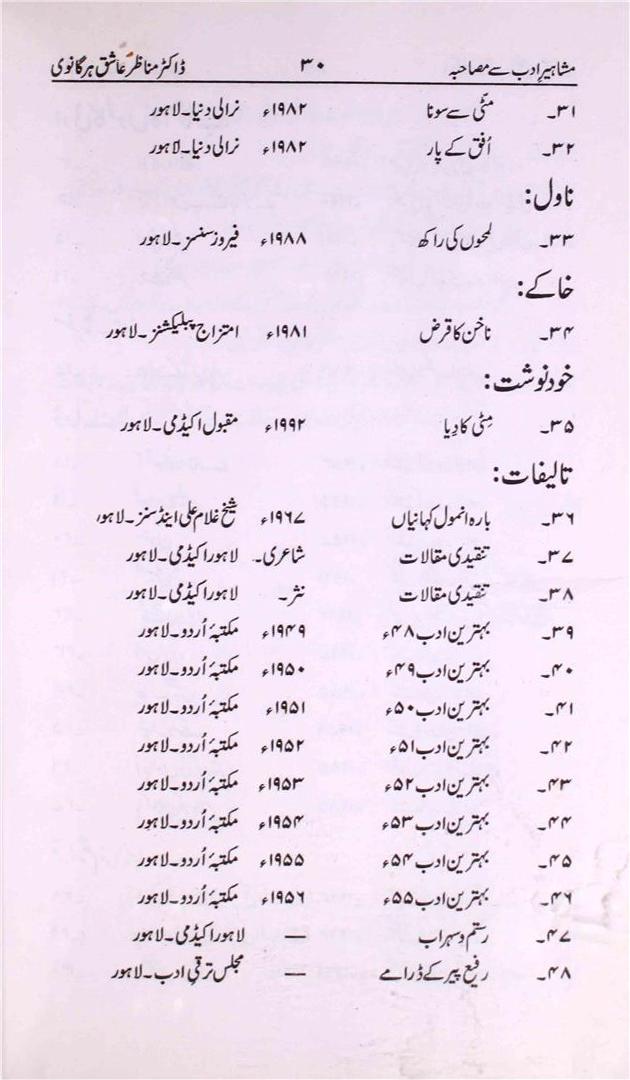 مشاہیرِ ادب سے مصاحبہ ۳۰ ڈاکٹر مناظر عاشق ہرگانوی
۳۱۔ مٹّی سے سونا ۱۹۸۲ء نرالی دنیا۔ لاہور
۳۲۔ اُفق کے پار ۱۹۸۲ء نرالی دنیا۔ لاہور
ناول:
۳۳۔ لمحوں کی راکھ ۱۹۸۸ء فیروز سنسز۔ لاہور
خاکے:
۳۴۔ ناخن کا قرض ۱۹۸۱ء امتزاج پبلیکشنز۔ لاہور
خودنوشت:
۳۵۔ مِٹی کا دِیا ۱۹۹۲ء مقبول اکیڈمی۔ لاہور
تالیفات:
۳۶۔ بارہ انمول کہانیاں ۱۹۶۷ء شیخ غلام علی اینڈ سنز۔ لاہور
۳۷۔ تنقیدی مقالات شاعری۔ لاہور اکیڈمی۔ لاہور
۳۸۔ تنقیدی مقالات نثر۔ لاہور اکیڈمی۔ لاہور
۳۹۔ بہترین ادب ۴۸ء ۱۹۴۹ء مکتبۂ اُردو۔ لاہور
۴۰۔ بہترین ادب ۴۹ء ۱۹۵۰ء مکتبۂ اُردو۔ لاہور
۴۱۔ بہترین ادب ۵۰ء ۱۹۵۱ء مکتبۂ اُردو۔ لاہور
۴۲۔ بہترین ادب ۵۱ء ۱۹۵۲ء مکتبۂ اُردو۔ لاہور
۴۳۔ بہترین ادب ۵۲ء ۱۹۵۳ء مکتبۂ اُردو۔ لاہور
۴۴۔ بہترین ادب ۵۳ء ۱۹۵۴ء مکتبۂ اُردو۔ لاہور
۴۵۔ بہترین ادب ۵۴ء ۱۹۵۵ء مکتبۂ اُردو۔ لاہور
۴۶۔ بہترین ادب ۵۵ء ۱۹۵۶ء مکتبۂ اُردو۔ لاہور
۴۷۔ رستم و سہراب — لاہور اکیڈمی۔ لاہور
۴۸۔ رفیع پیر کے ڈرامے — مجلس ترقیِ ادب۔ لاہور